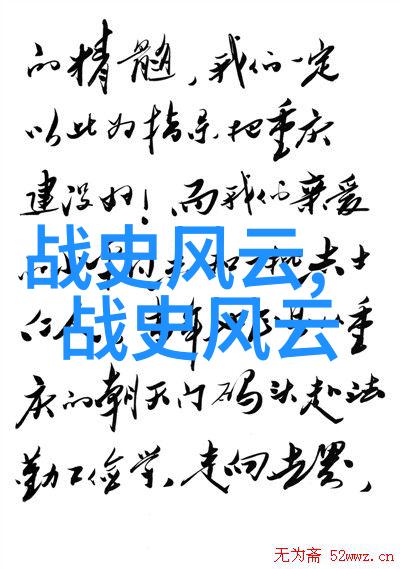 的精髓，我们一定
以此为指导，把重庆
建设好！而我们亲爱
战史风云,
和 志士
战史风云
年 重
庆的朝天门码头赴法
勤工俭学，走向世界，
无为斋 52wwz.cn